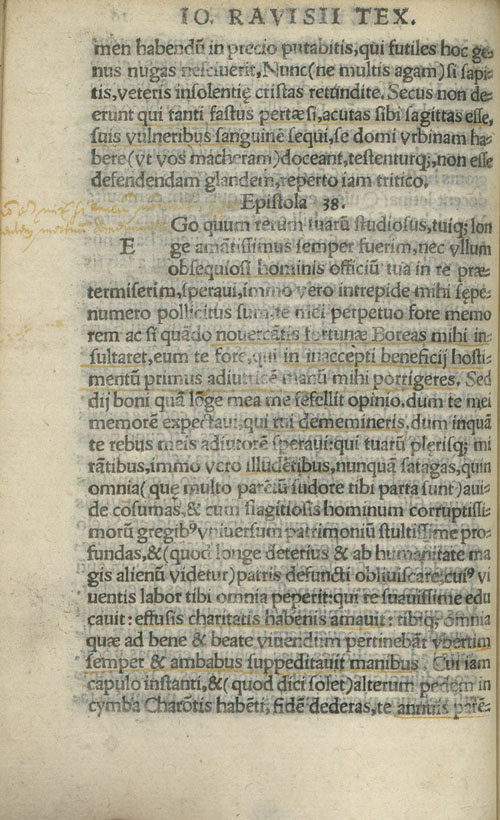 IO. RAVISII TEX.
men habendũ in precio putabitis, qui futiles hoc ge-
nus nugas nesciuerit, Nunc (ne multis agam) si sapi-
tis, veteris insolentię cristas rettundite. Secus non de-
erunt qui tanti fastus pertæsi, acutas sibi sagittas esse,
suis vulneribus sanguinẽ sequi, se domi vrbinam ha-
bere (vt vos macheram) doceant, testenturq;, non esse
defendendam glandem, reperto iam tritico.
Epistola 38.
EGo quum rerum tuarũ studiosus, tuiq; lon
ge amãtissimus semper fuerim, nec vllum
obsequiosi hominis officiũ tua in re præ-
termiserim, speraui, immo vero intrepide mihi sępe-
numero pollicitus sum, te mei perpetuo fore memo
rem ac si quãdo nouercãtis fortunæ Boreas mihi in-
sultaret, eum te fore, qui in inaccepti beneficij hosti-
mentũ primus adiutricẽ manũ mihi porrigeres. Sed
dij boni quã lõge mea me fefellit opinio. dum te mei
memorẽ expectaui, qui tui dememineris. dum inquã
te rebus meis adiutorẽ speraui: qui tuarũ plerisq; mi
rãtibus, immo vero illudẽtibus, nunquã satagas, quin
omnia (que multo parẽtũ sudore tibi parta sunt) aui-
de cosumas, & cum flagitiosis hominum corruptissi-
morũ gregibꝰ vniuersum patrimoniũ stultissime pro-
fundas, & (quod longe deterius & ab humanitate ma
gis alienũ videtur) patris defuncti obliuiscare: cuiꝰ vi
uentis labor tibi omnia peperit: qui te suauissime edu
cauit: effusis charitatis habenis amauit: tibiq; omnia
quæ ad bene & beate viuendum pertinebãt vbertim
semper & ambabus suppeditauit manibus. Cui iam
capulo instanti, & (quod dici solet) alterum pedem in
cymba Charõtis habẽti, fidẽ dederas, te annuis parẽ-